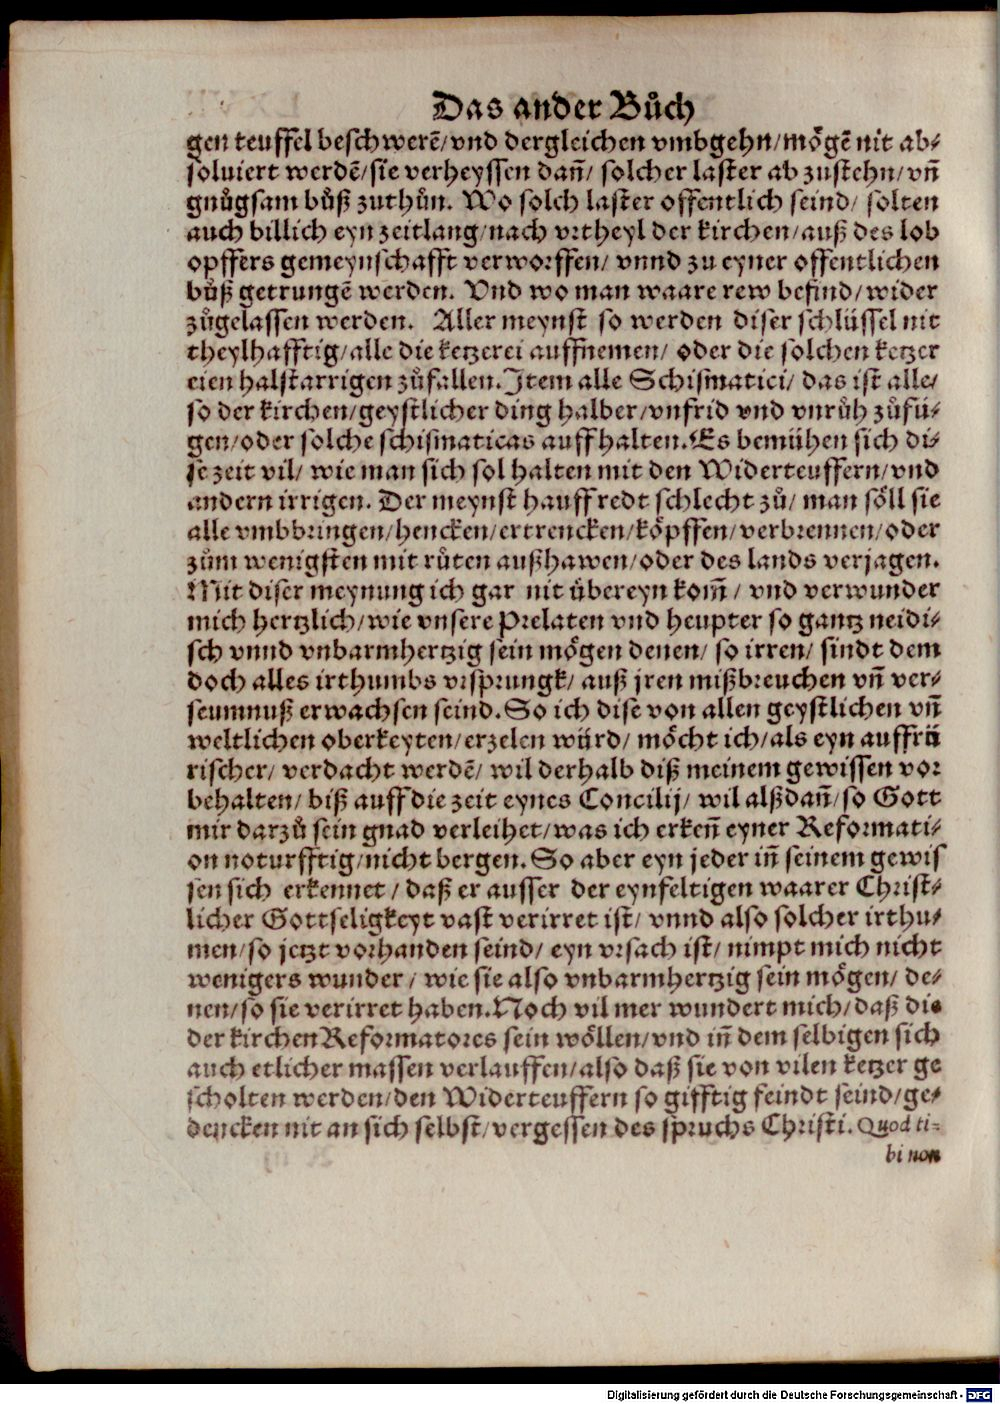 Das ander Bůch
gen teuffel beschwerē/vnd dergleichen vmbgehn/mögē nit ab-
soluiert werdē/sie verheyssen dañ/ solcher laster ab zustehn/vñ
gnůgsam bůß zuthůn. Wo solch laster offentlich seind/ solten
auch billich eyn zeitlang/nach vrtheyl der kirchen/auß des lob
opffers gemeynschafft verworffen/ vnnd zu eyner offentlichen
bůß getrungē werden. Vnd wo man waare rew befind/wider
zůgelassen werden. Aller meynst so werden diser schlüssel nit
theylhafftig/alle die ketzerei auffnemen/ oder die solchen ketzer
eien halstarrigen zůfallen. Item alle Schismatici/ das ist alle/
so der kirchen/geystlicher ding halber/vnfrid vnd vnrůh zůfü-
gen/oder solche schismaticas auffhalten. Es bemühen sich di-
se zeit vil/ wie man sich sol halten mit den Widerteuffern/vnd
andern irrigen. Der meynst hauff redt schlecht zů/ man söll sie
alle vmbbringen/hencken/ertrencken/köpffen/verbrennen/oder
zům wenigsten mit růten außhawen/oder des lands verjagen.
Mit diser meynung ich gar nit übereyn kom̃/ vnd verwunder
mich hertzlich/wie vnsere Prelaten vnd heupter so gantz neidi-
sch vnnd vnbarmhertzig sein mögen denen/ so irren/ sindt dem
doch alles irthumbs vrsprungk/ auß jren mißbreuchen vñ ver-
seumnuß erwachsen seind. So ich dise von allen geystlichen vñ
weltlichen oberkeyten/erzelen würd/ möcht ich/als eyn auffrü
rischer/ verdacht werdē/ wil derhalb diß meinem gewissen vor
behalten/ biß auff die zeit eynes Concilij/ wil alßdañ/so Gott
mir darzů sein gnad verleihet/was ich erkeñ eyner Reformati-
on noturfftig/nicht bergen. So aber eyn jeder iñ seinem gewis
sen sich erkennet/ daß er ausser der eynfeltigen waarer Christ-
licher Gottseligkeyt vast verirret ist/ vnnd also solcher irthu-
men/so jetzt vorhanden seind/ eyn vrsach ist/ nimpt mich nicht
wenigers wunder/ wie sie also vnbarmhertzig sein mögen/ de-
nen/so sie verirret haben. Noch vil mer wundert mich/daß die
der kirchen Reformatores sein wöllen/vnd iñ dem selbigen sich
auch etlicher massen verlauffen/also daß sie von vilen ketzer ge
scholten werden/den Widerteuffern so gifftig feindt seind/ge-
dencken nit an sich selbst/vergessen des spruchs Christi. Quod ti-
bi non
Digitalisierung gefördert durch die Deutsche Forschungsgemeinschaft - DFG